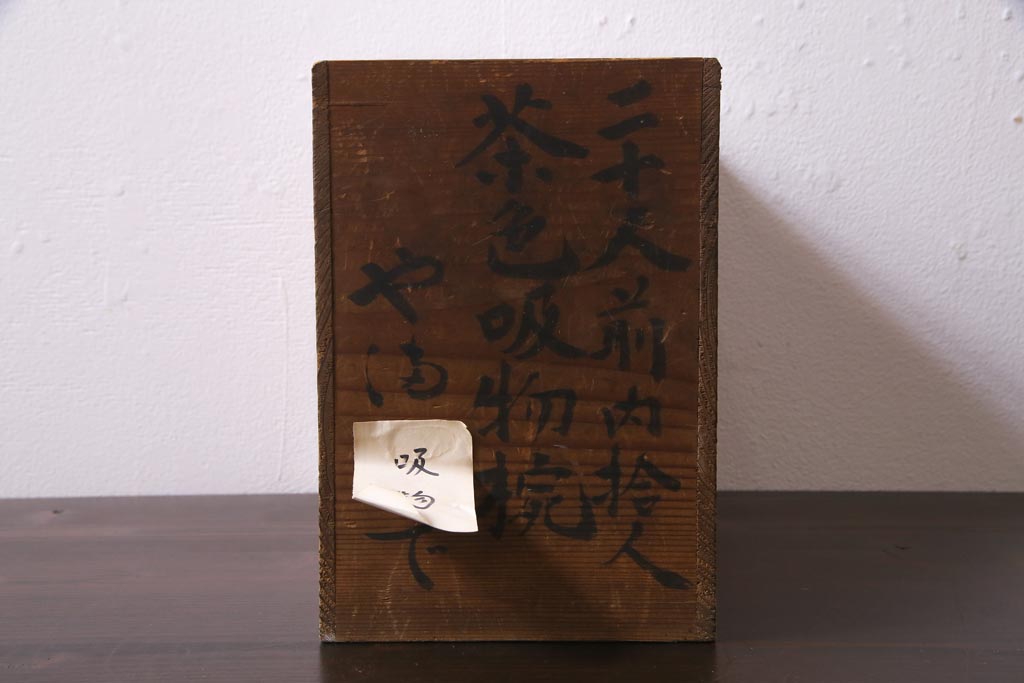 二十人前内拾人
茶色吸物椀
やま
で
吸物